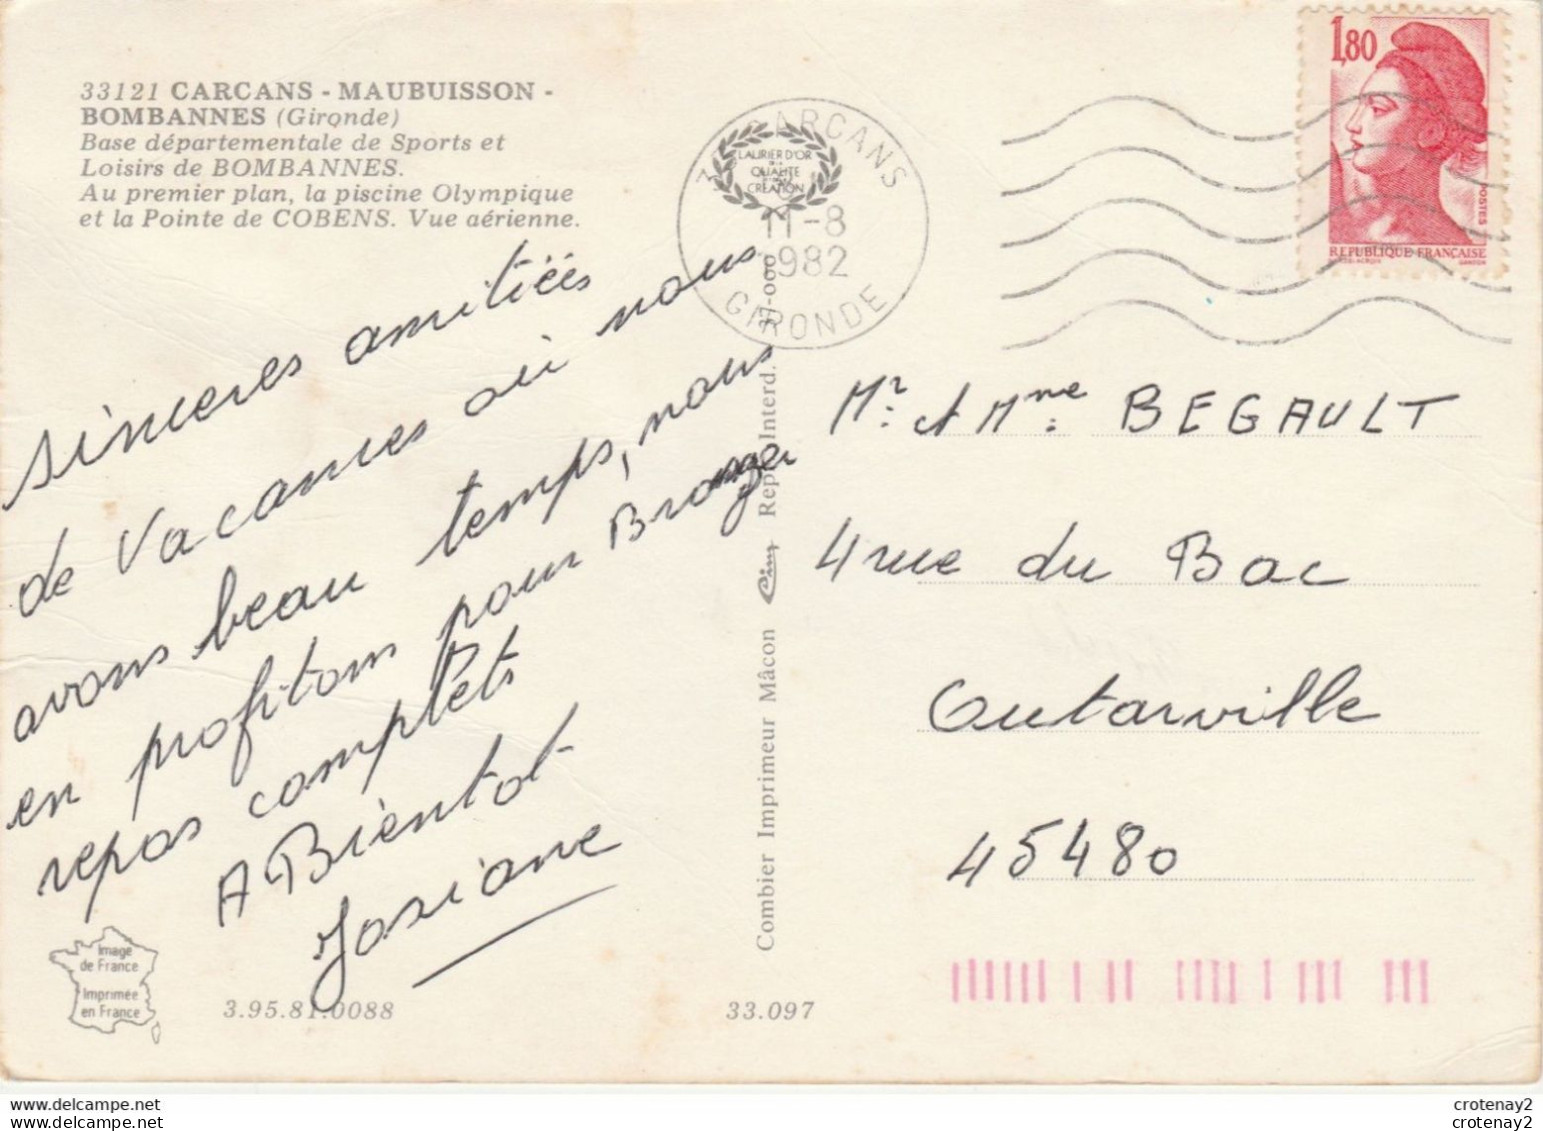 33121 CARCANS - MAUBUISSON -
BOMBANNES (Gironde)
Base départementale de Sports et
Loisirs de BOMBANNES.
Au premier plan, la piscine Olympique
et la Pointe de COBENS. Vue aérienne.
Sincères amitiéés
de Vacances où nous
avons beau temps, nous
en profitons pour Bronzer
repas complèts
A Bientot
Josiane
Image
de France
Imprimée
en France
3.95.81.0088
33.097
Combier Imprimeur Mâcon Cim Repr. Interd.
LAURIER D'OR
DE LA
QUALITE
CREATION
33 CARCANS
11-8
1982
GIRONDE
1,80
POSTES
REPUBLIQUE FRANÇAISE
Mr. et Mme. BEGAULT
4 rue du Bac
Outarville
45480
www.delcampe.net
www.delcampe.net
crotenay2
crotenay2